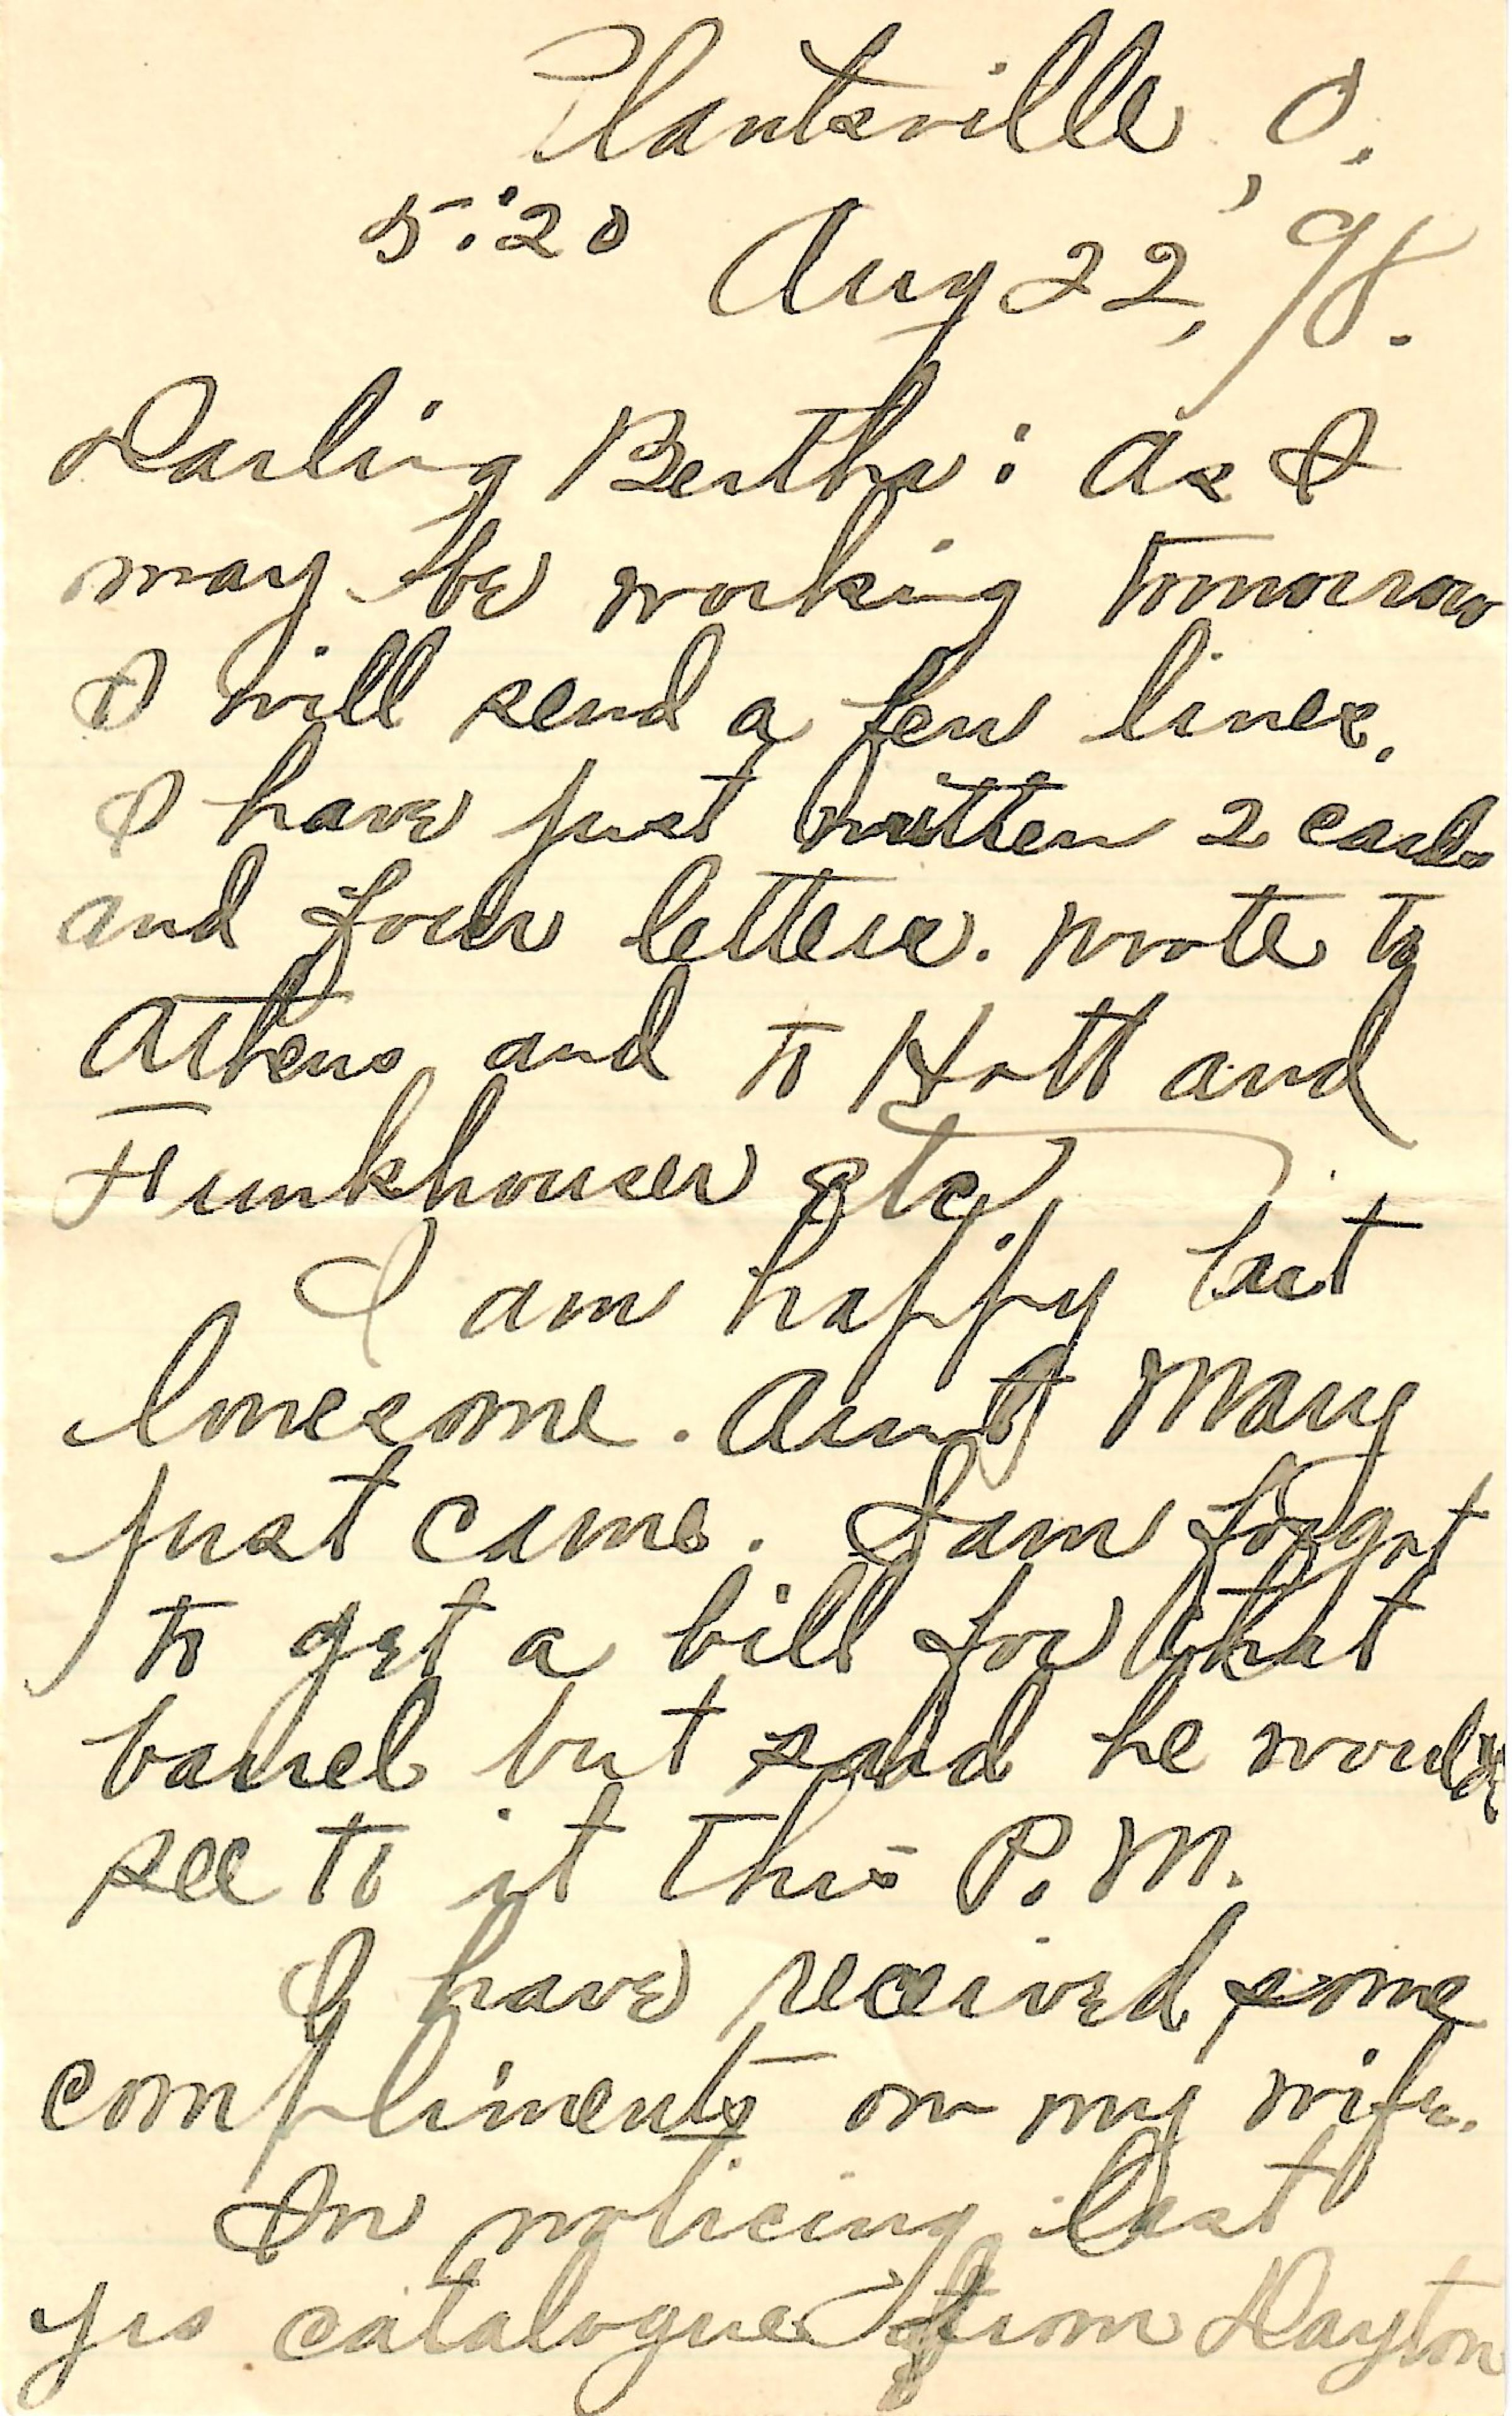 Plantsville, O.
5:20 Aug 22, '98.
Darling Bertha: As I
may be working tomorrow
I will send a few lines.
I have just written 2 cards
and four letters. Wrote to
Athens and to Hott and
Funkhouser etc.
I am happy but
lonesome. Aunt Mary
just came. Sam forgot
to get a bill for that
barrel but said he would
see to it this P.M.
I have received some
compliments on my wife.
In noticing last
yrs catalogue from Dayton